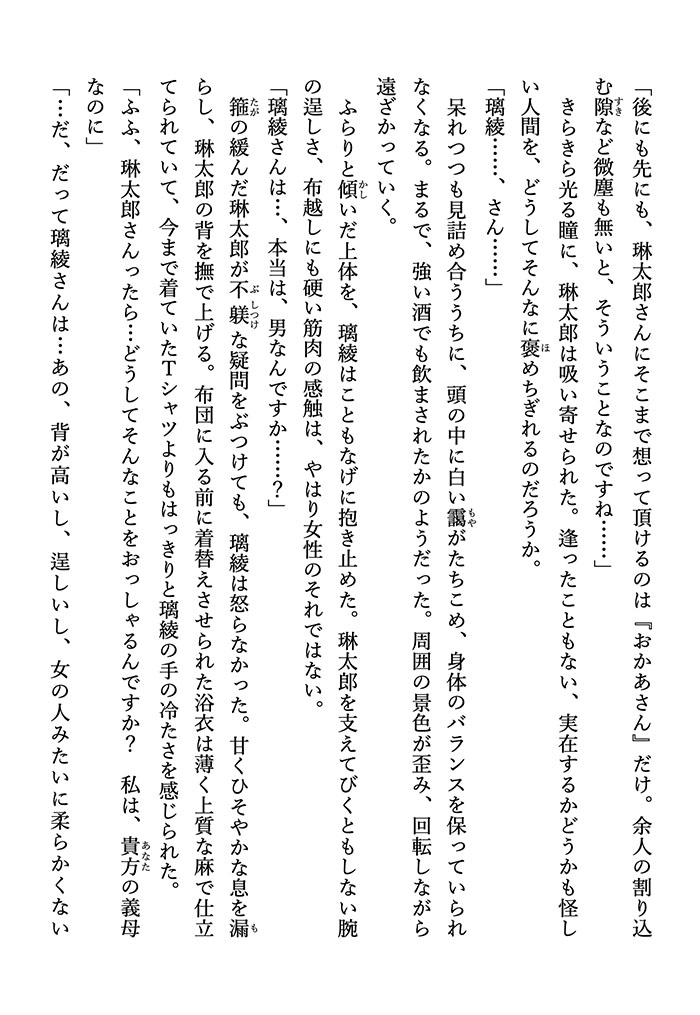 「後にも先にも、琳太郎さんにそこまで想って頂けるのは『おかあさん』だけ。余人の割り込
む隙など微塵も無いと、そういうことなのですね……」
きらきら光る瞳に、琳太郎は吸い寄せられた。逢ったこともない、実在するかどうかも怪し
い人間を、どうしてそんなに褒めちぎれるのだろうか。
「璃綾……、さん……」
呆れつつも見詰め合ううちに、頭の中に白い靄がたちこめ、身体のバランスを保っていられ
なくなる。まるで、強い酒でも飲まされたかのようだった。周囲の景色が歪み、回転しながら
遠ざかっていく。
ふらりと傾いだ上体を、璃綾はこともなげに抱き止めた。琳太郎を支えてびくともしない腕
の逞しさ、布越しにも硬い筋肉の感触は、やはり女性のそれではない。
「璃綾さんは…、本当は、男なんですか……?」
箍の緩んだ琳太郎が不躾な疑問をぶつけても、璃綾は怒らなかった。甘くひそやかな息を漏
らし、琳太郎の背を撫で上げる。布団に入る前に着替えさせられた浴衣は薄く上質な麻で仕立
てられていて、今まで着ていたTシャツよりもはっきりと璃綾の手の冷たさを感じられた。
「ふふ、琳太郎さんったら…どうしてそんなことをおっしゃるんですか? 私は、貴方の義母
なのに」
「…だ、だって璃綾さんは…あの、背が高いし、逞しいし、女の人みたいに柔らかくない